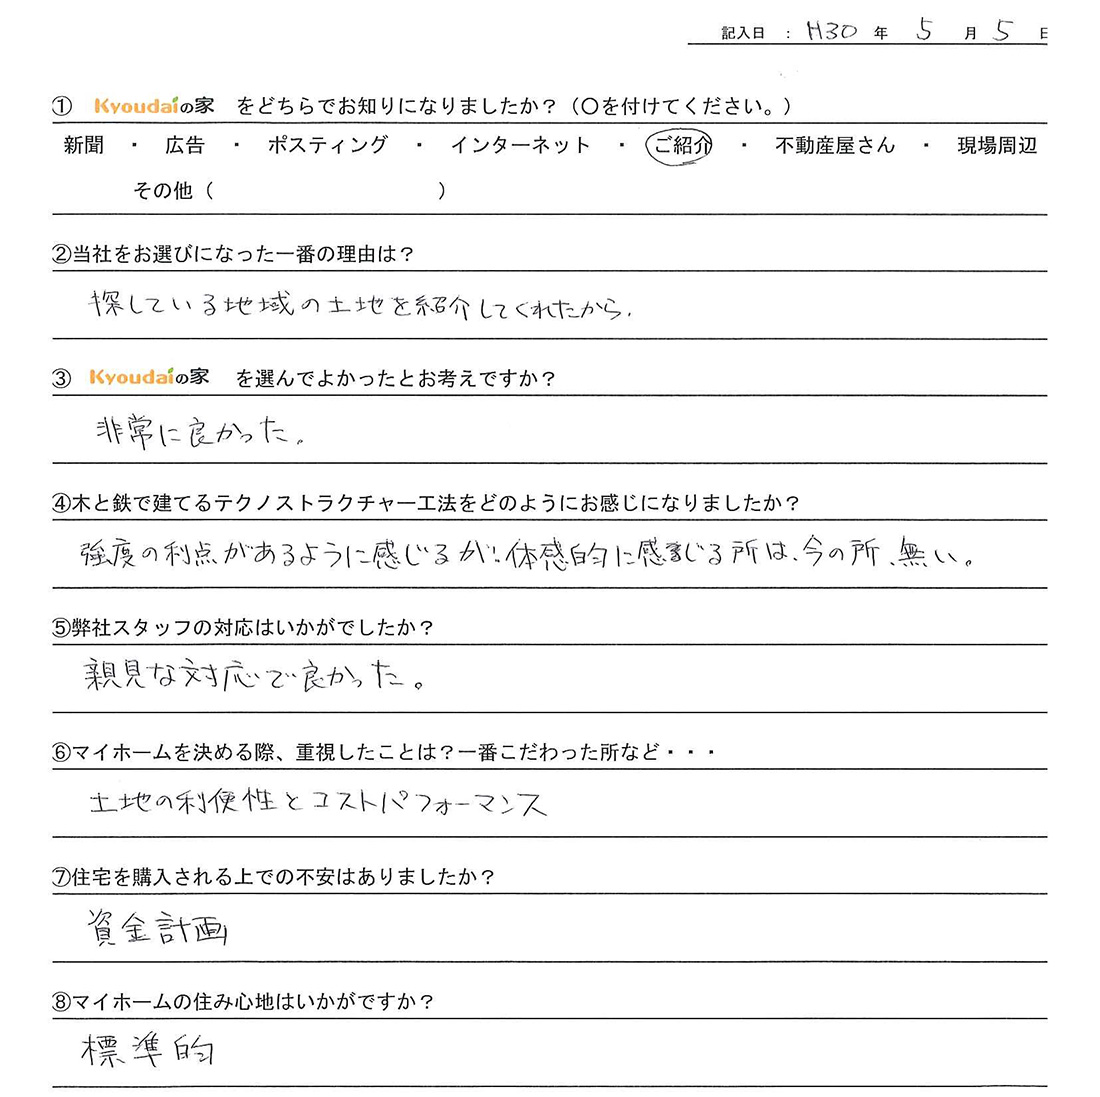 記入日 : H30 年 5 月 5 日
① Kyoudaiの家 をどちらでお知りになりましたか?(〇を付けてください。)
新聞 ・ 広告 ・ ポスティング ・ インターネット ・ ご紹介 ・ 不動産屋さん ・ 現場周辺
その他( )
②当社をお選びになった一番の理由は?
探している地域の土地を紹介してくれたから.
③ Kyoudaiの家 を選んでよかったとお考えですか?
非常に良かった。
④木と鉄で建てるテクノストラクチャー工法をどのようにお感じになりましたか?
強度の利点があるように感じるが、体感的に感じる所は、今の所、無い。
⑤弊社スタッフの対応はいかがでしたか?
親見な対応で良かった。
⑥マイホームを決める際、重視したことは?一番こだわった所など・・・
土地の利便性とコストパフォーマンス
⑦住宅を購入される上での不安はありましたか?
資金計画
⑧マイホームの住み心地はいかがですか?
標準的